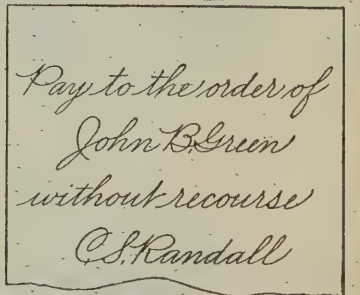 Pay to the order of
John B. Green
without recourse
C. S. Randall